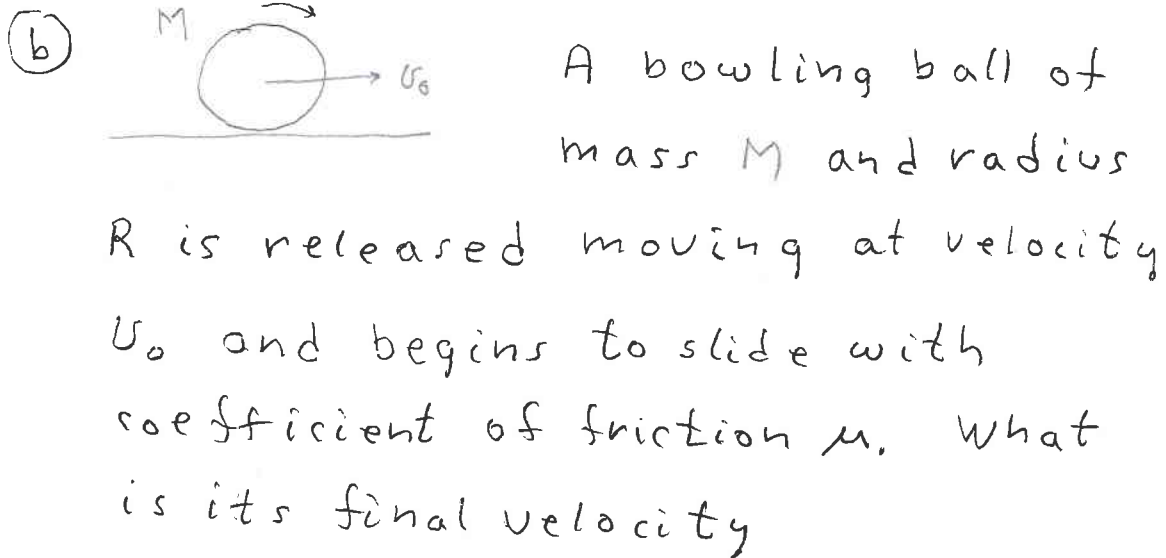 b
M
υ₀
A bowling ball of
mass M and radius
R is released moving at velocity
υ₀ and begins to slide with
coefficient of friction μ. What
is its final velocity